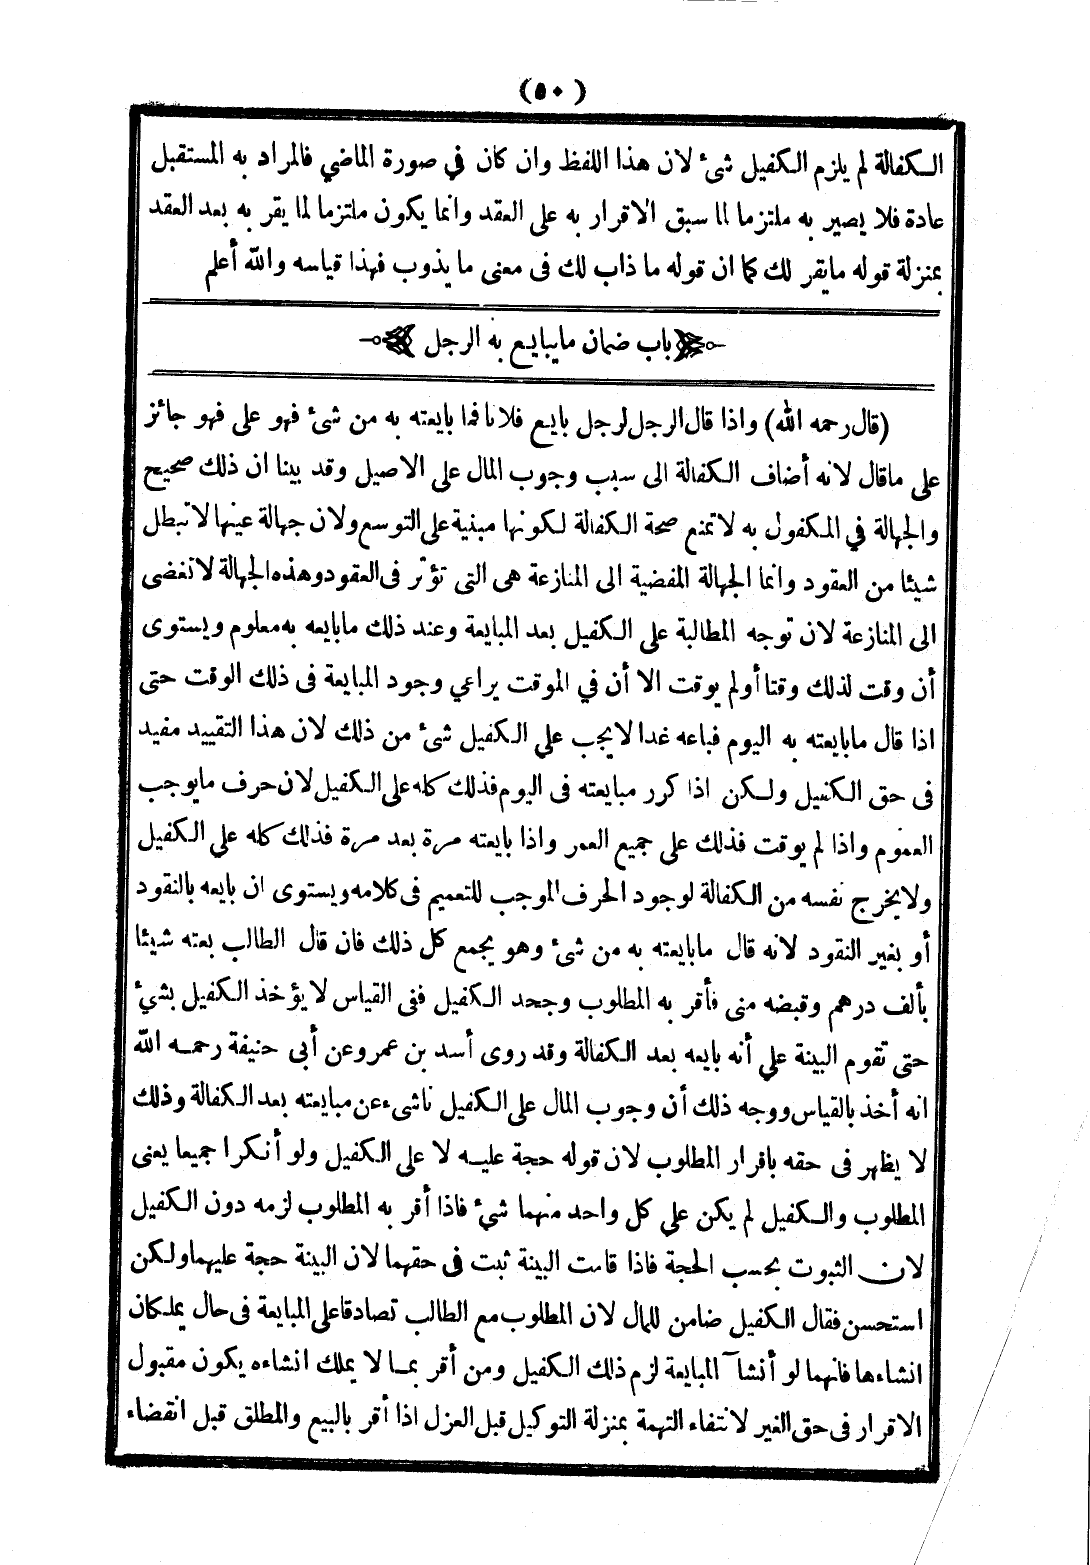 (٥٠)
الكفالة لم يلزم الكفيل شئ لان هذا اللفظ وان كان في صورة الماضي فالمراد به المستقبل
عادة فلا يصير به ملتزما لما سبق الاقرار به على العقد وانما يكون ملتزما لما يقر به بعد العقد
بمنزلة قوله مايقر لك كما ان قوله ما ذاب لك فى معنى ما يذوب فهذا قياسه والله أعلم
باب ضمان مايبايع به الرجل
(قال رحمه الله) واذا قال الرجل لرجل بايع فلانا فما بايعته به من شئ فهو على فهو جائز
على ماقال لانه أضاف الكفالة الى سبب وجوب المال على الاصيل وقد بينا ان ذلك صحيح
والجهالة في المكفول به لا تمنع صحة الكفالة لكونها مبنية على التوسع ولان جهالة عينها لا تبطل
شيئا من العقود وانما الجهالة المفضية الى المنازعة هى التى تؤثر فى العقود وهذه الجهالة لا تفضى
الى المنازعة لان توجه المطالبة على الكفيل بعد المبايعة وعند ذلك مابايعه به معلوم ويستوى
أن وقت لذلك وقتا أولم يوقت الا أن في الموقت يراعي وجود المبايعة فى ذلك الوقت حتى
اذا قال مابايعته به اليوم فباعه غدا لايجب على الكفيل شئ من ذلك لان هذا التقييد مفيد
فى حق الكفيل ولكن اذا كرر مبايعته فى اليوم فذلك كله على الكفيل لان حرف مايوجب
العموم واذا لم يوقت فذلك على جميع العمر واذا بايعته مرة بعد مرة فذلك كله على الكفيل
ولايخرج نفسه من الكفالة لوجود الحرف الموجب للتعميم فى كلامه ويستوى ان بايعه بالنقود
أو بغير النقود لانه قال مابايعته به من شئ وهو يجمع كل ذلك فان قال الطالب بعته شيئا
بألف درهم وقبضه منى فأقر به المطلوب وجحد الكفيل ففى القياس لا يؤخذ الكفيل بشئ
حتى تقوم البينة علي أنه بايعه بعد الكفالة وقد روى أسد بن عمرو عن أبى حنيفة رحمه الله
انه أخذ بالقياس ووجه ذلك أن وجوب المال على الكفيل ناشىء عن مبايعته بعد الكفالة وذلك
لا يظهر فى حقه باقرار المطلوب لان قوله حجة عليه لا على الكفيل ولو أنكرا جميعا يعنى
المطلوب والكفيل لم يكن علي كل واحد منهما شئ فاذا أقر به المطلوب لزمه دون الكفيل
لان الثبوت بحسب الحجة فاذا قامت البينة ثبت فى حقهما لان البينة حجة عليهما ولكن
استحسن فقال الكفيل ضامن للمال لان المطلوب مع الطالب تصادقا على المبايعة فى حال يملكان
انشاءها فانهما لو أنشآ المبايعة لزم ذلك الكفيل ومن أقر بما لا يملك انشاءه يكون مقبول
الاقرار فى حق الغير لانتفاء التهمة بمنزلة التوكيل قبل العزل اذا أقر بالبيع والمطلق قبل انقضاء